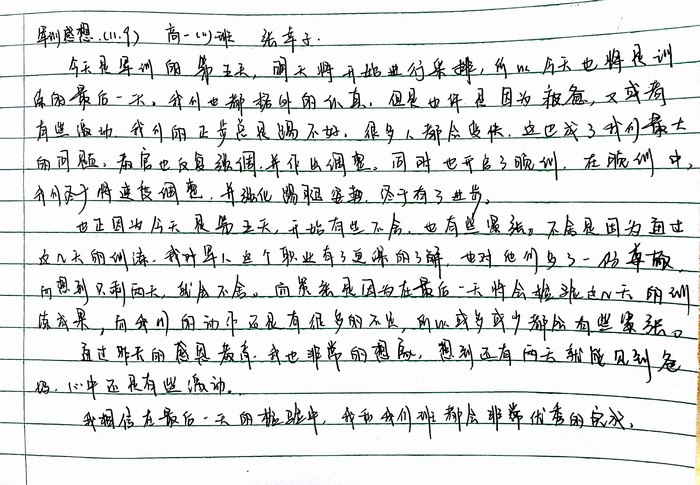 军训感想.(11.9) 高一(1)班 张幸子.
今天是军训的第五天,明天将开始进行彩排,所以今天也将是训
练的最后一天。我们也都格外的认真。但是也许是因为疲惫,又或者
有些激动,我们的正步总是踢不好。很多人都会变快.这也成了我们最大
的问题。教官也反复强调,并作出调整。同时也开启了晚训,在晚训中,
我们终于将速度调整,并强化踢腿姿势,终于有了进步。
也正因为今天是第五天,开始有些不舍,也有些紧张。不舍是因为通过
这几天的训练,我对军人这个职业有了更深的了解,也对他们多了一份尊敬,
而想到只剩两天,就会不舍。而紧张是因为在最后一天将会检验这几天的训
练成果,而我们的动作还是有很多的不足,所以或多或少都会有些紧张。
通过昨天的感恩教育,我也非常的想家,想到还有两天就能见到爸
妈,心中还是有些激动。
我相信在最后一天的检验中,我和我们班都会非常优秀的完成。